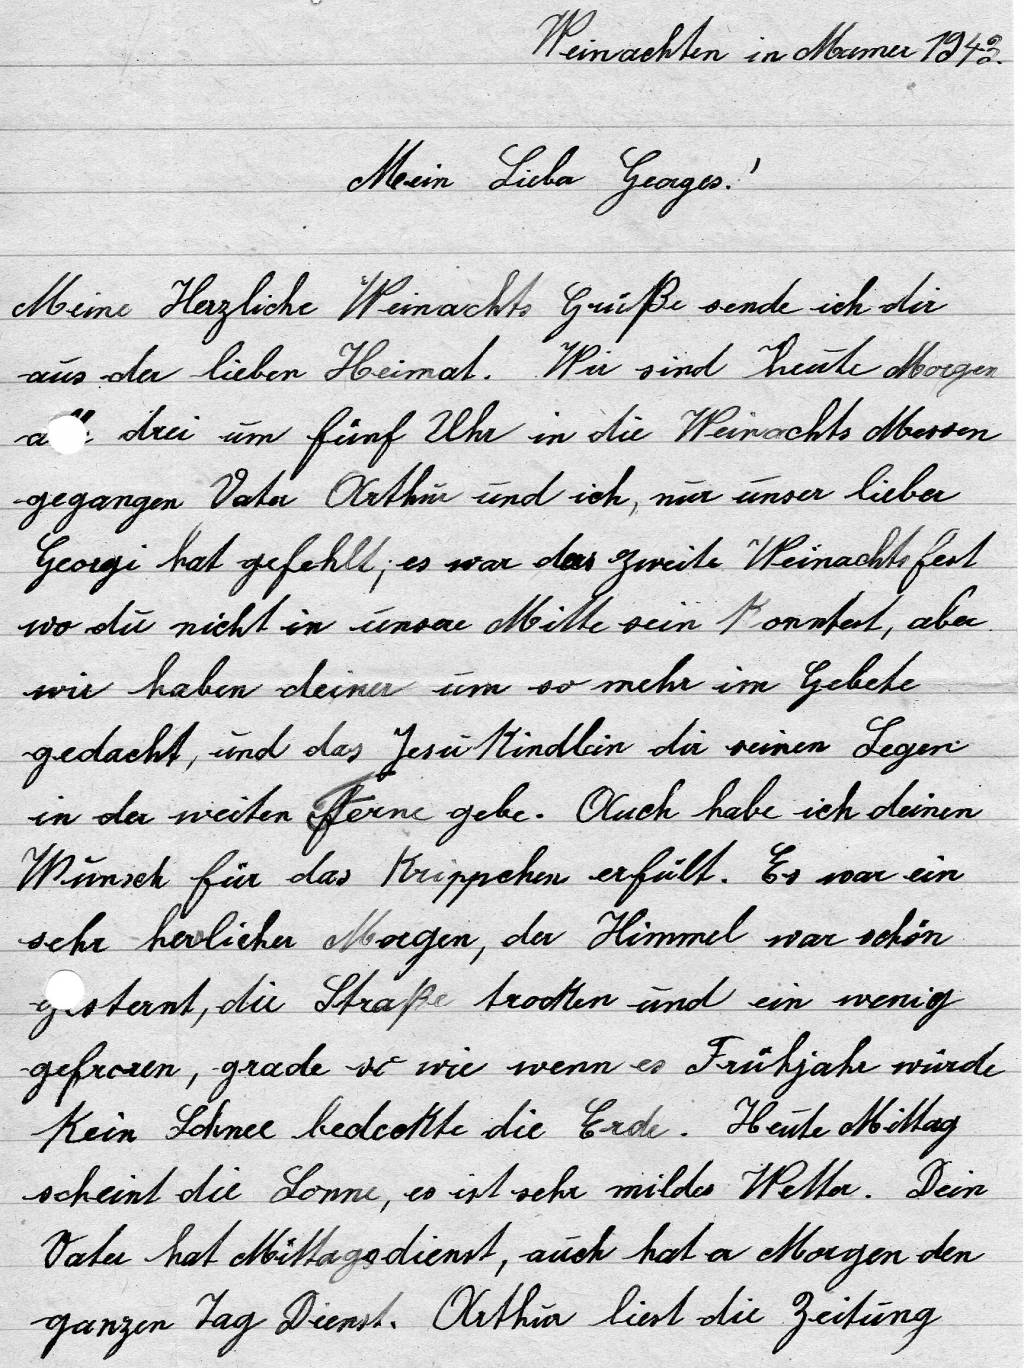 Weinachten in Mamer 1943.
Mein Lieber Georges!
Meine Herzliche Weinachts Grüße sende ich dir
aus der lieben Heimat. Wir sind heute Morgen
drei um fünf Uhr in die Weinachts Messen
gegangen Vater Arthur und ich, nur unser lieber
Georgi hat gefehlt, es war das zweite Weinachtsfest
wo du nicht in unsere Mitte sein konntest, aber
wir haben deiner um so mehr im Gebete
gedacht, und das Jesu Kindlein dir seinen Segen
in der weiten Ferne gebe. Auch habe ich deinen
Wunsch für das Krippchen erfült. Es war ein
sehr herlicher Morgen, der Himmel war schön
gesternt, die Straße trocken und ein wenig
gefroren, grade so wie wenn es Frühjahr würde
Kein Schnee bedeckte die Erde. Heute Mittag
scheint die Sonne, es ist sehr mildes Wetter. Dein
Vater hat Mittagsdienst, auch hat er Morgen den
ganzen Tag Dienst. Arthur liest die Zeitung